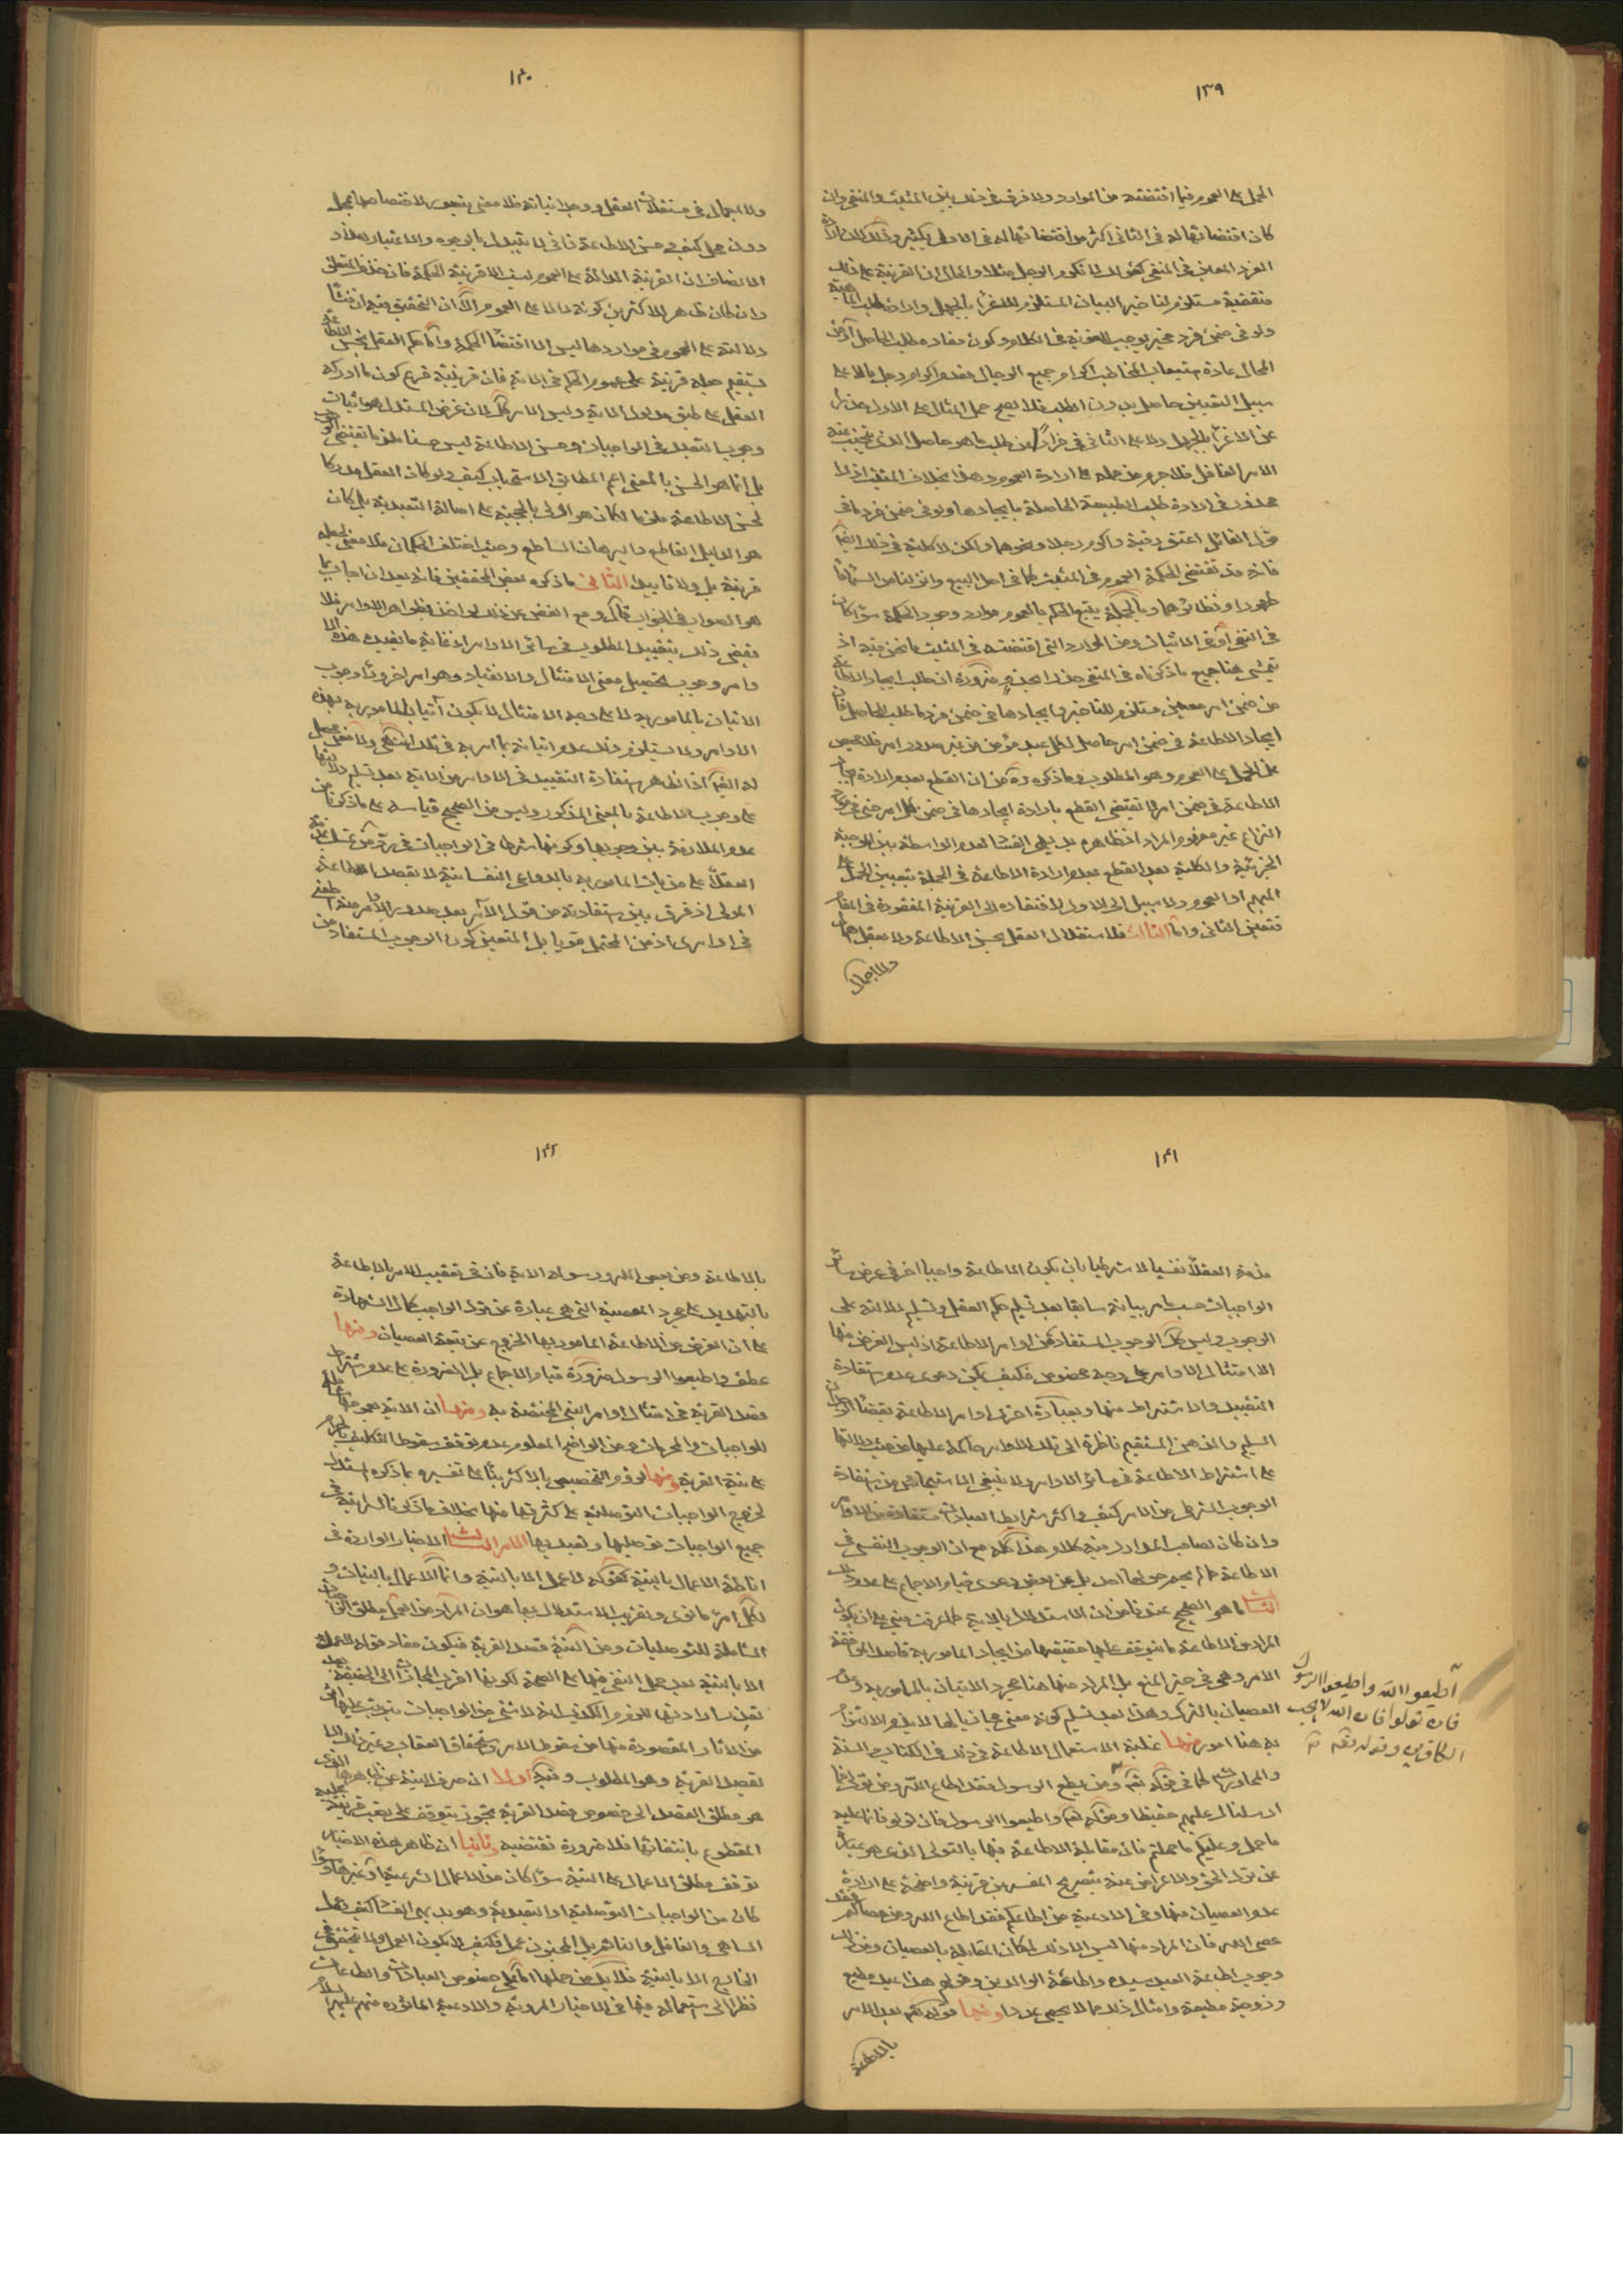 ١٣٩
الحمل على العموم فيما اقتضته من الموارد ولا فرق في ذلك بين المثبت والمنفي وان
كان اقتضائها له في الثاني اكثر من اقتضائها له في الاول بكثير وذلك لان ارادة
الفرد المعين في المنفي كقولك لا تكرم الرجل مثلا والحال ان القرينة على ذلك
منقضية مستلزم لتاخير البيان المستلزم للاغراء بالجهل وارادة طلب الماهية
ولو في ضمن فرد غير يوجب اللغوية في الكلام وكون مفاده طلب الحاصل اذ من
المحال عادة استيعاب المخاطب اكرام جميع الرجال فعدم اكرام رجل ما لا على
سبيل التعيين حاصل بدون الطلب فلا يصح حمل المثال على الاول حذرا
عن الاغراء بالجهل ولا على الثاني فرارا عن طلب ما هو حاصل الذي يجتنب عنه
الامر الغافل فلا جرم من حمله على ارادة العموم وهذا بخلاف المثبت اذ لا
محذور في ارادة طلب الطبيعة الحاصلة بايجادها ولو في ضمن فرد ما في
قول القائل اعتق رقبة واكرم رجلا ونحوها ولكن لا كلية في ذلك ايضا
فانه قد تقتضي الحكمة العموم في المثبت كما في احل البيع وانزلنا من السماء ماء
طهورا ونظائرهما وبالجملة يتبع الحكم بالعموم موارد وجود الحكمة سواء كان
في النفي او في الاثبات ومن الموارد التي اقتضته في المثبت ما نحن فيه اذ
يتمشى هنا جميع ما ذكرناه في المنفي حذرا ضرورة ان طلب ايجاد الاطاعة
من ضمن امر معين مستلزم للتاخير وايجادها في ضمن فرد ما طلب للحاصل فان
ايجاد الاطاعة في ضمن امر حاصل لكل عبد مؤمن من غير صدور امر فلا محيص
عن الحمل على العموم وهو المطلوب وما ذكره من ان القطع بعدم ارادة ايجاد
الاطاعة في ضمن امر لا تقتضي القطع بارادة ايجادها في ضمن كل امر حتى
النزاع غير مفهوم المراد اذ ظاهره بديهي الفساد لعدم الواسطة بين الموجبة
الجزئية والكلية بعد القطع بعدم ارادة الاطاعة في الجملة يتعين الحمل على
المبهم او العموم ولا سبيل الى الاول لافتقاره الى القرينة المفقودة في المقام
فتعين الثاني واما الثالث فلاستقلال العقل بحسن الاطاعة ولا يعقل
ولا اجمال
١٤٠
ولا اجمال في مستقلات العقل ووجدانياته فلا معنى يتصور لاختصاصها بمحل
دون محل كيف وحسن الاطاعة ذاتي لا يتبدل بالوجوه والاعتبار
الانصاف ان القرينة الدالة على العموم ليست الا قرينة الحكمة فان حذف المتعلق
وان كان ظاهر الاكثرين كونه دالا على العموم الا ان التحقيق فيه ان منشأ
دلالته على العموم في مواردها ليس الا اقتضاء الحكمة واما حكم العقل بحسن الاطاعة
يستقيم جعله قرينة على عموم الحكم في الاية فان قرينيته فرع كون ما ادركه
العقل على طبق مدلول الاية وليس الامر كذلك لان غرض المستدل هو اثبات
وجوب التعبد في الواجبات وحسن الاطاعة ليس حسنا ملزما يقتضي الوجوب
بل انما هو الحسن بالمعنى اعم المطابق للاستحباب كيف ولو كان العقل مدركا
لحسن الاطاعة ملزما لكان هو اولى بالحجية على اصالة التعبدية بل كان
هو الدليل القاطع والبرهان الساطع وحيث اختلف الحكمان فلا معنى لجعله
قرينة بل ولا تاييدا الثاني ما ذكره بعض المحققين فانه بعد ان اجاب بما
هو الصواب في الجواب قال ومع الغض عن ذلك لو اخذ بظواهر الاوامر فلا
نقضي ذلك بتقييد المطلوب في سائر الاوامر اذ غاية ما يفيده هذه
وامر وجوب تحصيل معنى الامتثال والانقياد وهو امر اخر وراء وجوب
الاتيان بالمامور به لا على وجه الامتثال لا يكون آتيا بالمامور به بهذه
الاوامر ولا يستلزم ذلك عدم اتيانه بما امر به في تلك
له ايضا اذ الظاهر استفادة التقييد في الاوامر من الاية بعد تسليم دلالتها
على وجوب الاطاعة بالمعنى المذكور وليس من الصحيح قياسه على ما ذكرنا من
عدم الملازمة بين وجوبها وكونها شرطا في الواجبات في
العقلاء على من ياتي المامور به بالدواعي النفسانية لا بقصد الاطاعة
المولى اذ فرق بين استفادته من قول الآمر بعد صدور الاوامر منه
في اوامره اذ من المحتمل قويا بل المتعين كون الوجوب المستفاد من
١٤١
مذمة العقلاء نفسيا لا شرطيا بان يكون الاطاعة واجبا اخر في عرض سائر
الواجبات حسب ما مر بيانه سابقا بعد تسليم حكم العقل وتسليم دلالته على
الوجوب وليس كذلك الوجوب المستفاد من اوامر الاطاعة اذ ليس الغرض منها
الا امتثال الاوامر على وجه مخصوص فكيف يمكن دعوى عدم استفادة
التقييد والاشتراط منها وبعبارة اخرى اوامر الاطاعة بقضاء الوجدان
السليم والذهن المستقيم ناظرة الى تلك الاوامر حاكمة عليها من حيث دلالتها
على اشتراط الاطاعة في سائر الاوامر ولا ينبغي الاستيحاش من استفادة
الوجوب الشرطي من الامر كيف واكثر شرايط العبادات مستفادة من الاوامر
وان كان لصاحب المدارك فيه كلام هذا كله مع ان الوجوب النفسي في
الاطاعة مما لم يحم حولها احد بل عن بعض دعوى قيام الاجماع على عدم ذلك
الثالث ما هو الصحيح عندنا من ان الاستدلال بالاية كما عرفت مبني على ان يكون
المراد من الاطاعة ما يتوقف عليها حقيقتها من ايجاد المامور به قاصدا لموافقة
الامر وهي في حيز المنع بل المراد منها هنا مجرد الاتيان بالمامور به وعدم
العصيان بالترك وهذا بعد تسليم كونه معنى مجازيا لها لابد من الالتزام
به هنا لامور منها غلبة الاستعمال الاطاعة في ذلك في الكتاب والسنة
والمحاورات كما في قوله تعالى ومن يطع الرسول فقد اطاع الله ومن تولى فما
ارسلناك عليهم حفيظا وقوله تعالى واطيعوا الرسول فان تولوا فانما عليه
ما حمل وعليكم ما حملتم فان مقابلة الاطاعة فيها بالتولي الذي هو عبارة
عن ترك الحق والاعراض عنه بتصريح المفسرين قرينة واضحة على ارادة
عدم العصيان منها وفي الادعية من اطاعكم فقد اطاع الله ومن عصاكم فقد
عصى الله فان المراد منها ليس الا ذلك لمكان المقابلة بالعصيان ومن ذلك
وجوب اطاعة العبد سيده واطاعة الوالدين وقولهم هذا عبد مطيع
وزوجة مطيعة وامثال ذلك مما لا يحصى عددا ومنها قوله تعالى بعد الامر
بالاطاعة
اطيعوا الله واطيعوا الرسول
فان تولوا فان الله لا يحب
الكافرين وقوله تعالى
١٤٢
بالاطاعة ومن يعص الله ورسوله الاية فان في تعقيب الامر بالاطاعة
بالتهديد على مجرد المعصية التي هي عبارة عن ترك الواجب كمال الشهادة
على ان الغرض من الاطاعة المامور بها الخروج عن تبعة العصيان ومنها
عطف واطيعوا الرسول ضرورة قيام الاجماع بل الضرورة على عدم اشتراط
قصد القربة في امتثال اوامر النبي المختصة به ومنها ان الاية بعمومها شاملة
للواجبات والمحرمات ومن الواضح المعلوم عدم توقف سقوط التكليف
على نية القربة ومنها لزوم التخصيص بالاكثر بناء على تفسيره بما ذكره المستدل
لخروج الواجبات التوصلية على كثرتها منها بخلاف ما ذكرنا لسراية
جميع الواجبات توصليها وتعبديها الامر الثالث الاخبار الواردة في
اناطة الاعمال بالنية كقوله لا عمل الا بالنية وانما الاعمال بالنيات و
لكل امرء ما نوى وتقريب الاستدلال بها هو ان المراد من العمل مطلق
الشاملة للتوصليات ومن النية قصد القربة فيكون مفاد قوله لا عمل
الا بالنية بعد حمل النفي فيها على الصحة لكونها اقرب المجازات الى الحقيقة بعد
تعذر ارادتها للزوم الكذب انه لا شيء من الواجبات يترتب عليها اثر
من الاثار المقصودة منها من سقوط الامر واستحقاق العقاب وغير ذلك الا
بقصد القربة وهو المطلوب وفيه اولا ان صرف النية عن ظاهرها الذي
هو مطلق القصد الى خصوص قصد القربة تجوز يتوقف على نصب قرينة عليه
المقطوع بانتفائها فلا ضرورة تقتضيه وثانيا ان ظاهر هذه الاخبار
توقف مطلق الاعمال على النية سواء كان من الاعمال الشرعية او غيرها وسواء
كان من الواجبات التوصلية او التعبدية وهو بديهي الفساد كيف وعمل
الساهي والغافل والنائم بل المجنون عمل فكيف لا يكون العمل ولا يتحقق في
الخارج الا بالنية فلابد من حملها اما على خصوص العبادات والطاعات
نظرا الى استعماله فيها في الاخبار المروية والادعية الماثورة منهم عليهم السلام